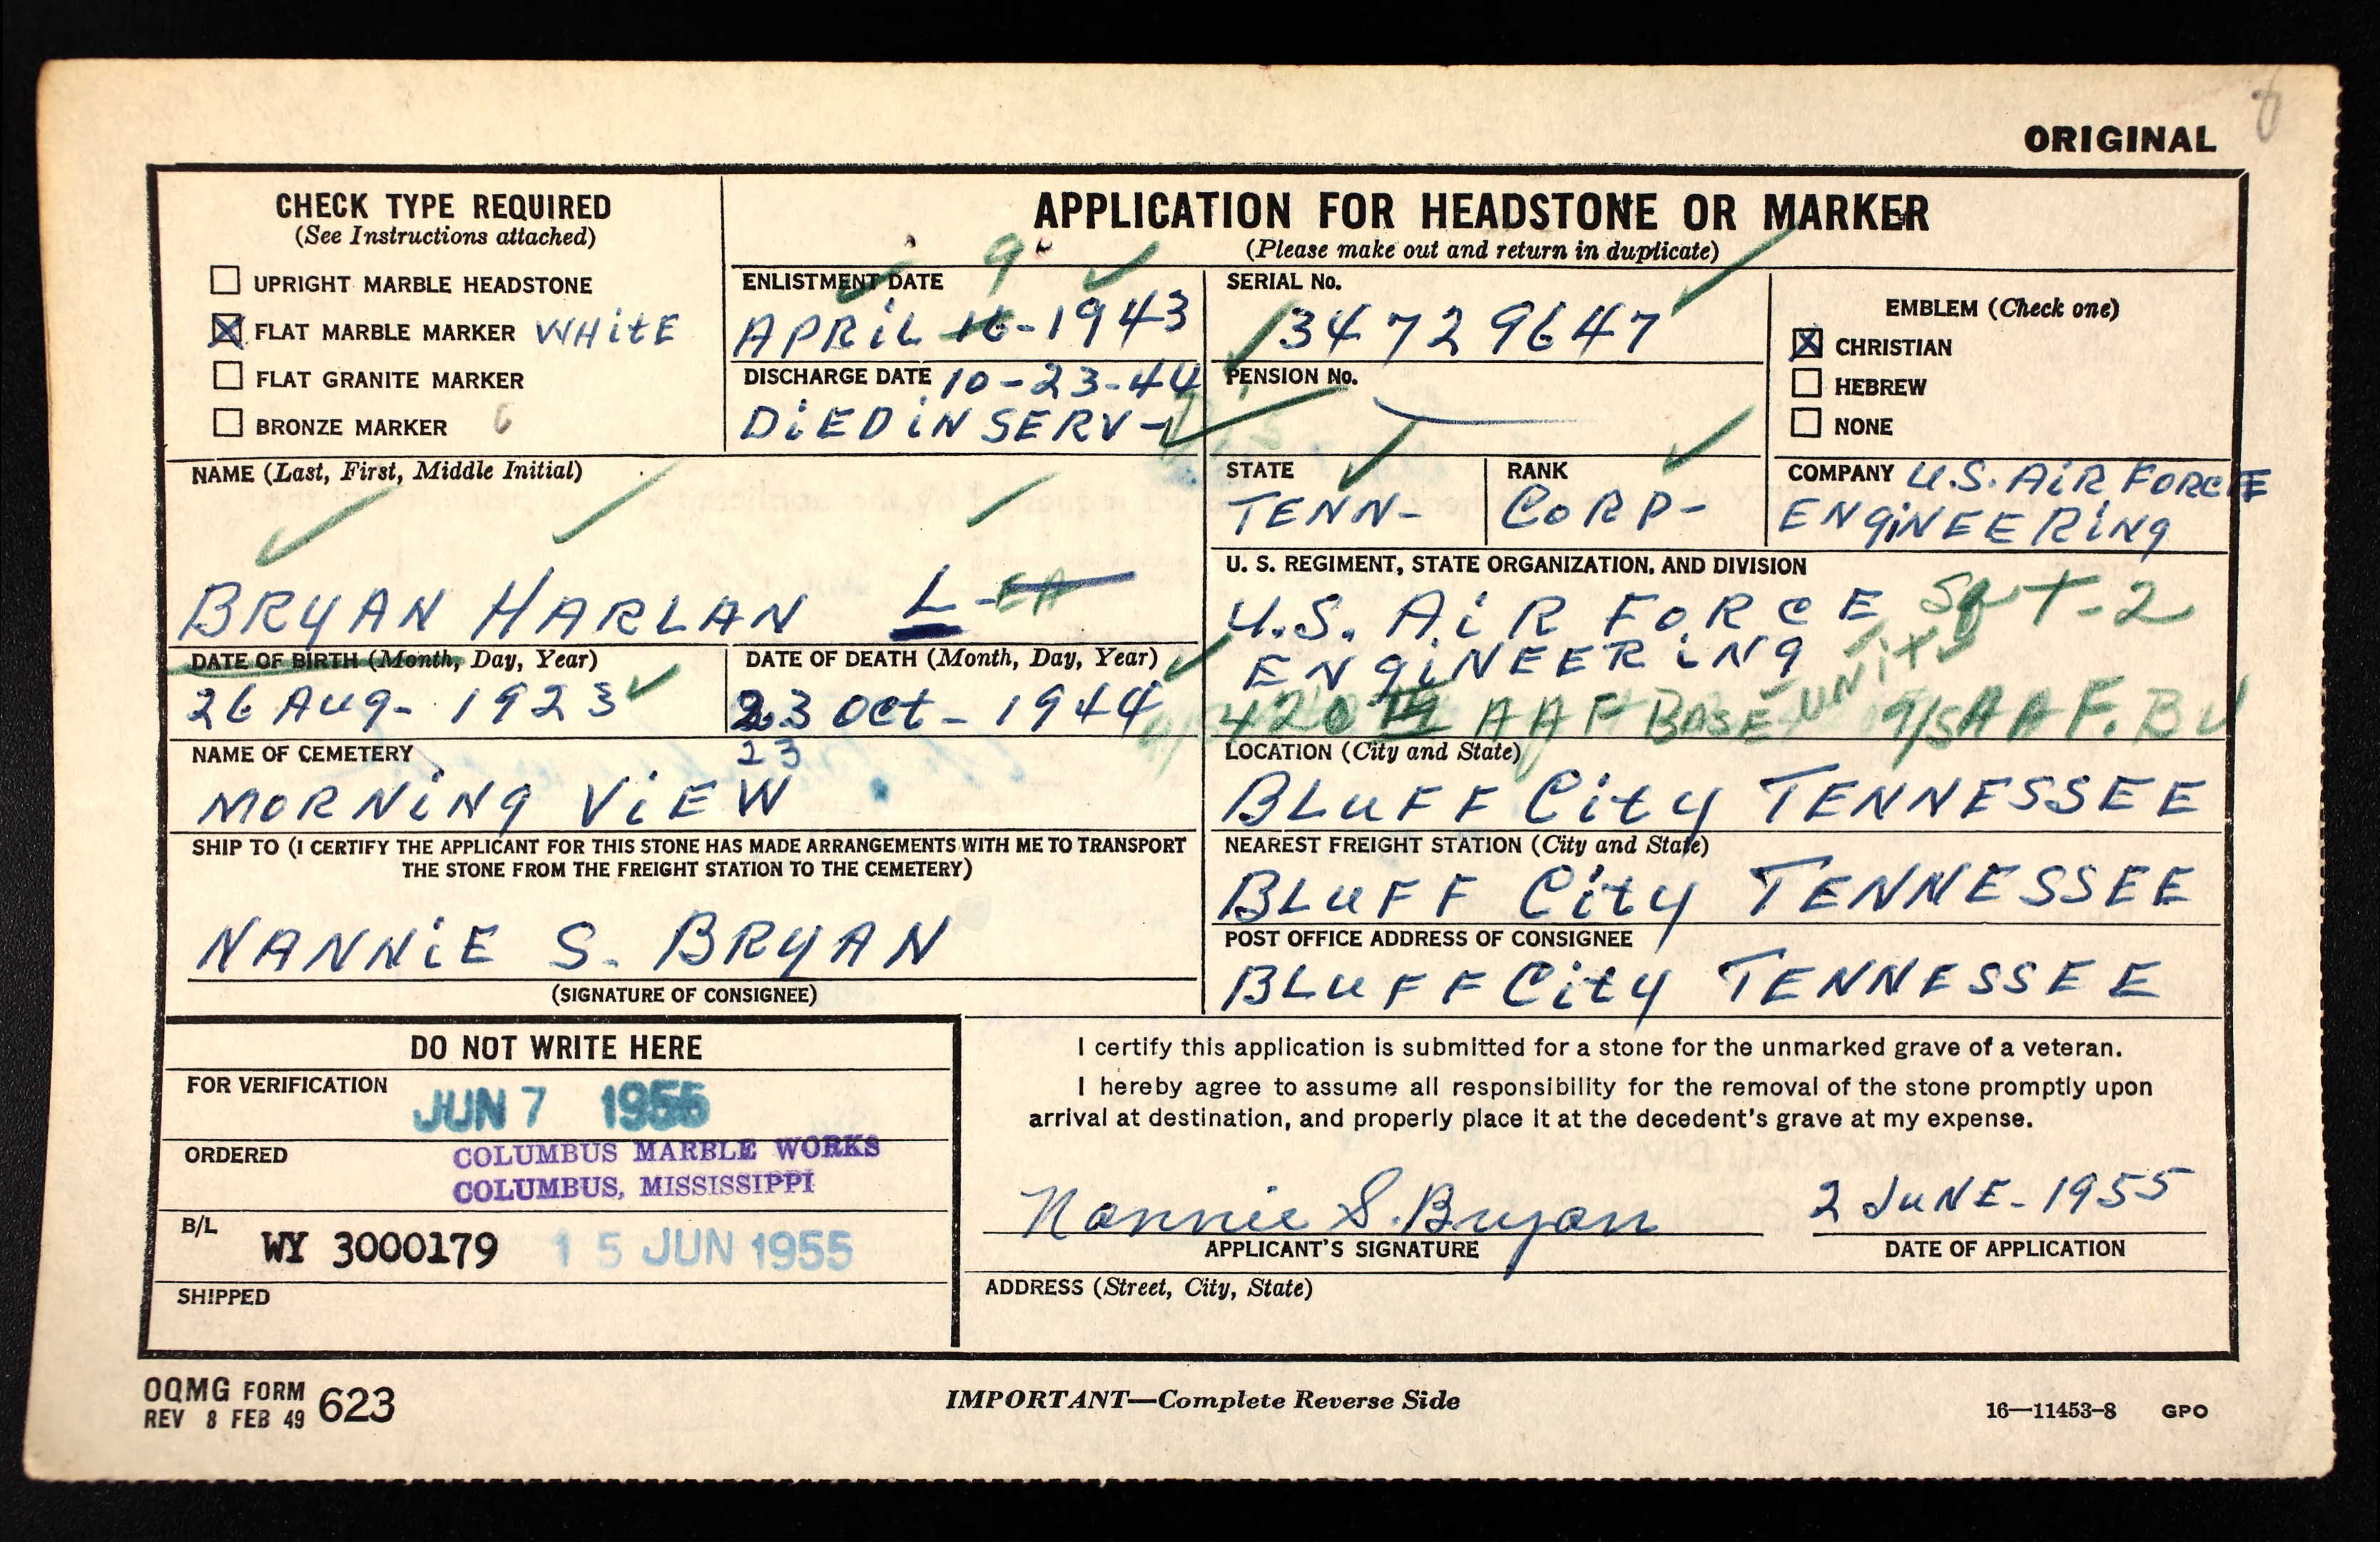 ORIGINAL
CHECK TYPE REQUIRED
(See Instructions attached)
UPRIGHT MARBLE HEADSTONE
FLAT MARBLE MARKER WHiTE
FLAT GRANITE MARKER
BRONZE MARKER
APPLICATION FOR HEADSTONE OR MARKER
(Please make out and return in duplicate)
ENLISTMENT DATE
9
APRiL 16-1943
DISCHARGE DATE 10-23-44
DiED iN SERV-
SERIAL No.
34729647
PENSION No.
EMBLEM (Check one)
CHRISTIAN
HEBREW
NONE
NAME (Last, First, Middle Initial)
BRYAN HARLAN L
STATE
TENN-
RANK
CORP-
COMPANY U.S. AiR FORCE
ENGiNEERiNg
U. S. REGIMENT, STATE ORGANIZATION, AND DIVISION
U.S. AiR FORCE Sq T-2
ENGiNEERiNg
420 AAF BASE UNIT
DATE OF BIRTH (Month, Day, Year)
26 AUg- 1923
DATE OF DEATH (Month, Day, Year)
23 OCt- 1944
23
NAME OF CEMETERY
MORNiNg ViEW
LOCATION (City and State)
BLUFF City TENNESSEE
SHIP TO (I CERTIFY THE APPLICANT FOR THIS STONE HAS MADE ARRANGEMENTS WITH ME TO TRANSPORT
THE STONE FROM THE FREIGHT STATION TO THE CEMETERY)
NANNiE S. BRYAN
(SIGNATURE OF CONSIGNEE)
NEAREST FREIGHT STATION (City and State)
BLUFF City TENNESSEE
POST OFFICE ADDRESS OF CONSIGNEE
BLUFF City TENNESSEE
DO NOT WRITE HERE
FOR VERIFICATION
JUN 7 1955
ORDERED
COLUMBUS MARBLE WORKS
COLUMBUS, MISSISSIPPI
B/L
WY 3000179 15 JUN 1955
SHIPPED
I certify this application is submitted for a stone for the unmarked grave of a veteran.
I hereby agree to assume all responsibility for the removal of the stone promptly upon
arrival at destination, and properly place it at the decedent's grave at my expense.
Nannie S. Bryan
APPLICANT'S SIGNATURE
2 JUNE-1955
DATE OF APPLICATION
ADDRESS (Street, City, State)
OQMG FORM 623
REV 8 FEB 49
IMPORTANT—Complete Reverse Side
16—11453-8 GPO